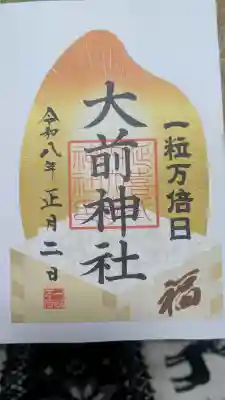 一粒万倍日
大前神社
令和八年正月二日
福